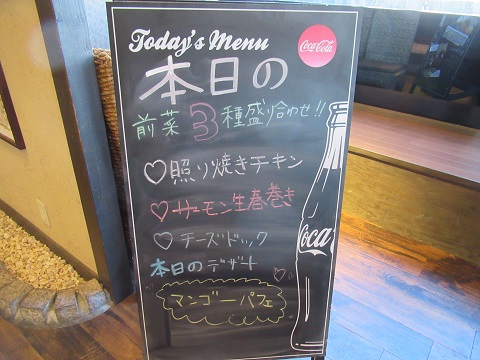 Today's Menu
Coca-Cola
本日の
前菜3種盛り合わせ!!
♡照り焼きチキン
♡サーモン生春巻き
♡チーズドック
本日のデザート
マンゴーパフェ
Coca